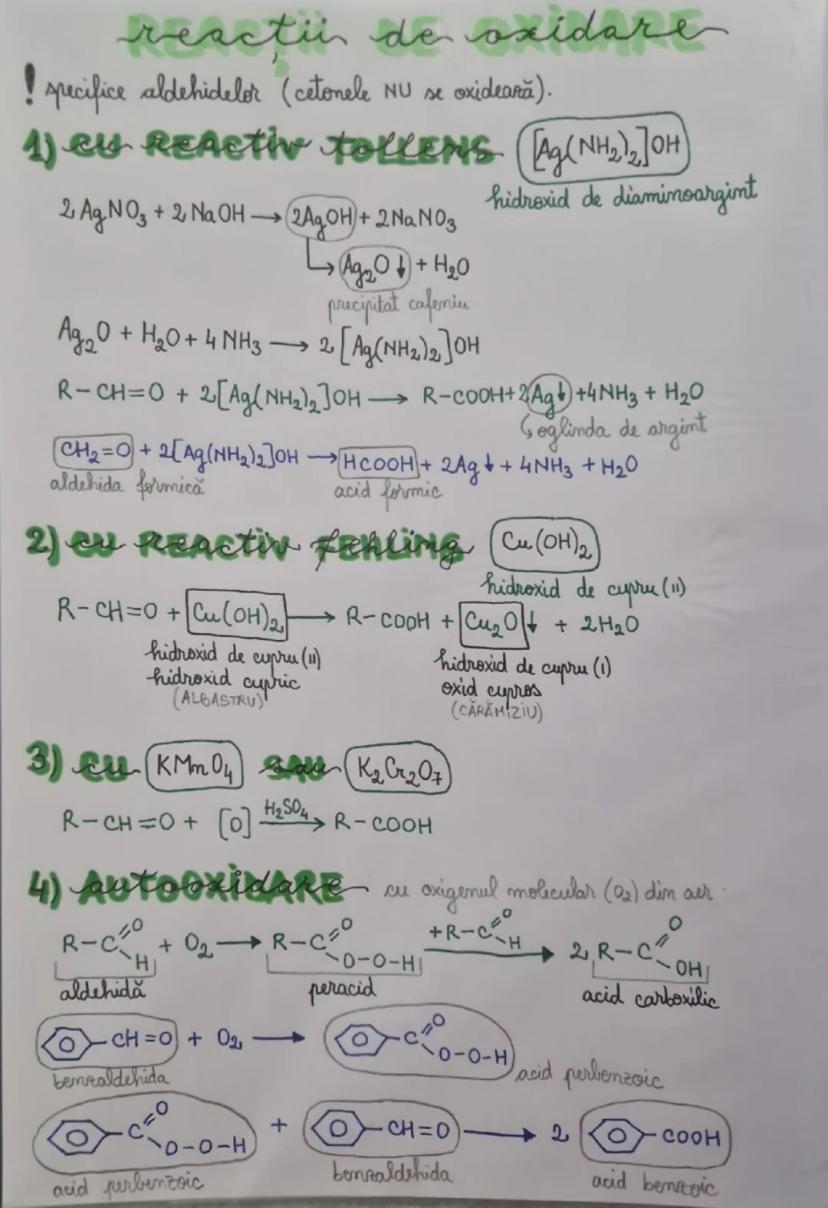 reacții de oxidare
! specifice aldehidelor (cetonele NU se oxidează).
1) cu REACtiv tollens [Ag(NH₂)₂]OH
hidroxid de diaminoargint
2AgNO₃ + 2NaOH → 2AgOH + 2NaNO₃
↳ Ag₂O↓ + H₂O
precipitat cafeniu
Ag₂O + H₂O + 4NH₃ → 2[Ag(NH₂)₂]OH
R-CH=O + 2[Ag(NH₂)₂]OH → R-COOH + 2Ag↓ + 4NH₃ + H₂O
↳ oglinda de argint
CH₂=O + 2[Ag(NH₂)₂]OH → HCOOH + 2Ag↓ + 4NH₃ + H₂O
aldehida formică acid formic
2) cu REACtiv fehling Cu(OH)₂
hidroxid de cupru (II)
R-CH=O + Cu(OH)₂ → R-COOH + Cu₂O↓ + 2H₂O
hidroxid de cupru (II) hidroxid de cupru (I)
hidroxid cupric oxid cupros
(ALBASTRU) (CĂRĂMIZIU)
3) cu KMnO₄ sau K₂Cr₂O₇
R-CH=O + [O] H₂SO₄→ R-COOH
4) autooxidare cu oxigenul molecular (O₂) din aer
R-C=O H + O₂ → R-C=O O-O-H +R-C=O H → 2 R-C=O OH
aldehidă peracid acid carboxilic
CH=O + O₂ → C=O O-O-H
benzaldehida acid perbenzoic
C=O O-O-H + CH=O → 2 COOH
acid perbenzoic benzaldehida acid benzoic